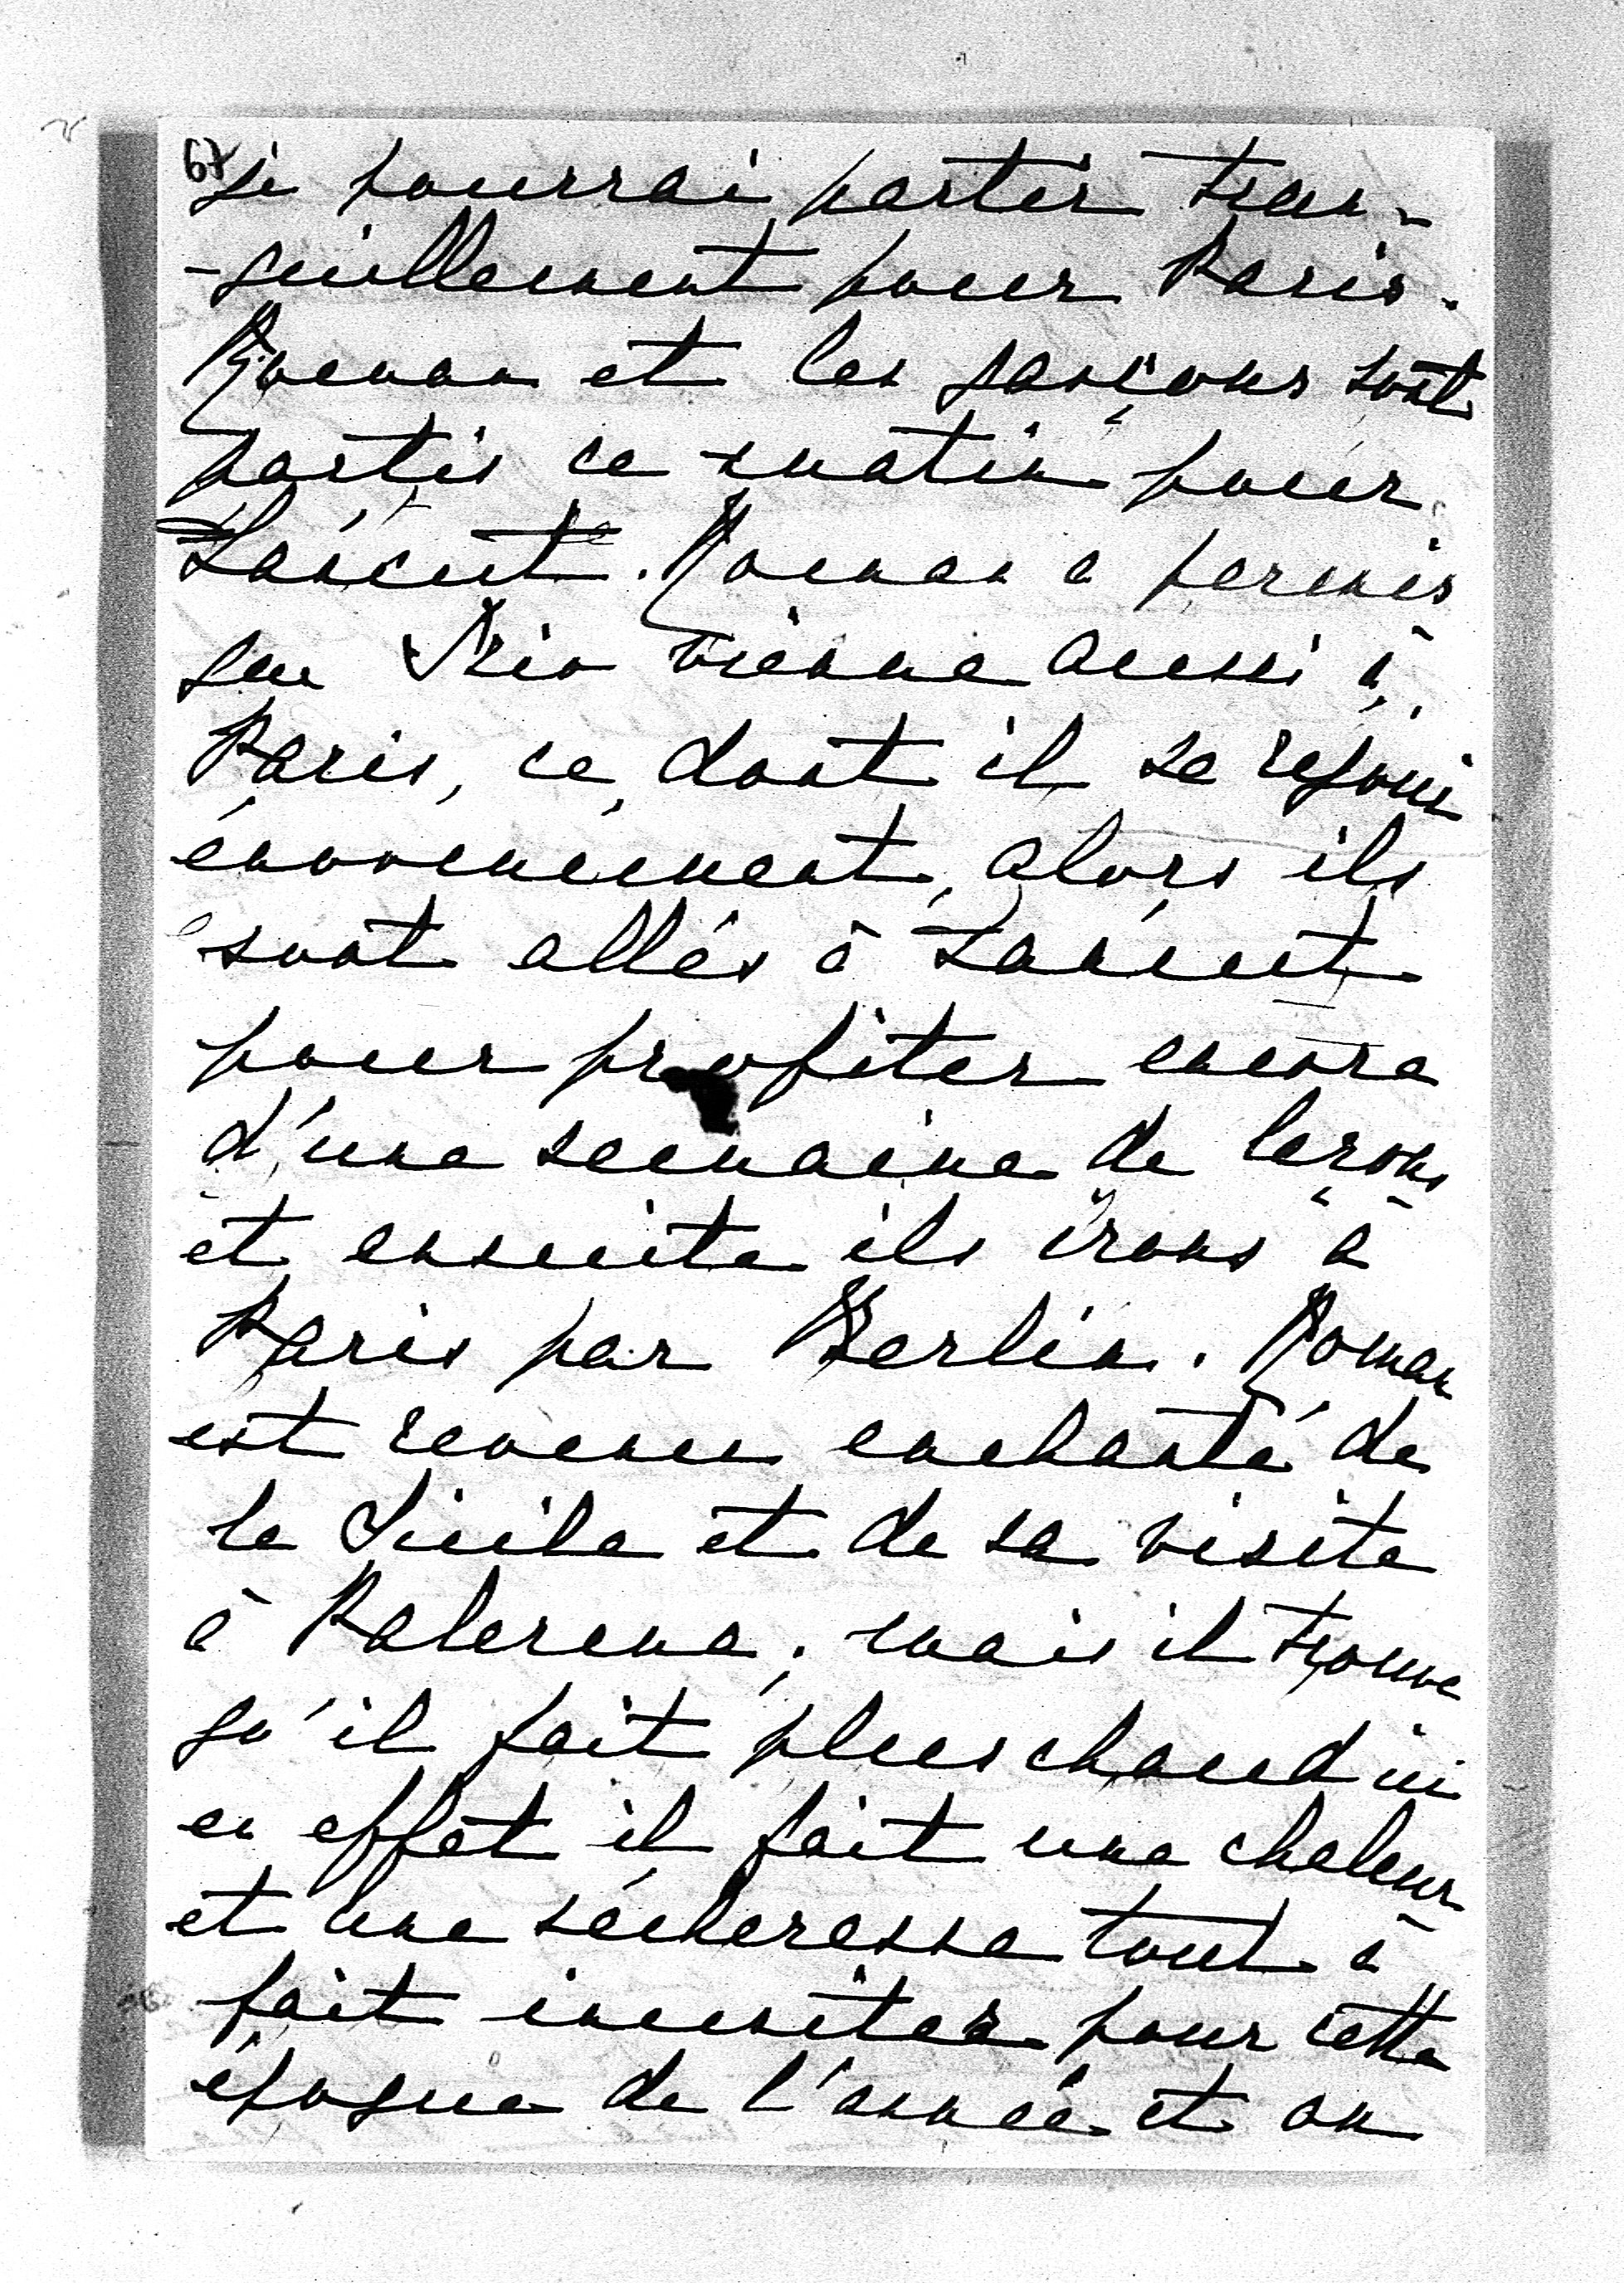 67
je pourrai partir tran-
-quillement pour Paris.
Roman et les garçons sont
partis ce matin pour
Łańcut. Roman a permis
que Stio vienne aussi à
Paris, ce dont il se rejoui
énormement, alors ils
sont allés à Łańcut
pour profiter encore
d'une semaine de leçons
et ensuite ils irons à
Paris par Berlin. Roman
est revenu enchanté de
la Sicile et de sa visite
à Palerme; mais il trouve
qu'il fait plus chaud ici
en effet il fait une chaleur
et une sécheresse tout à
fait inusitée pour cette
époque de l'année et on